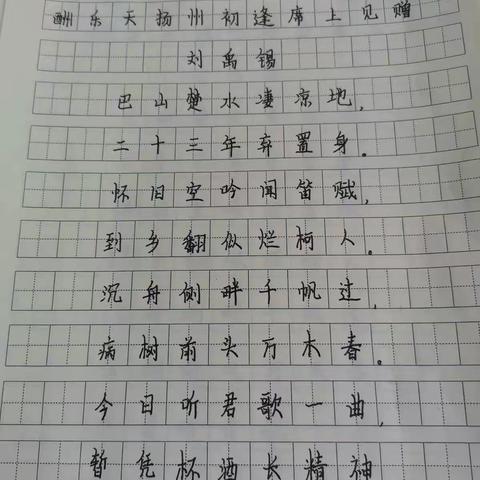 酬乐天扬州初逢席上见赠
刘禹锡
巴山楚水凄凉地,
二十三年弃置身。
怀旧空吟闻笛赋,
到乡翻似烂柯人。
沉舟侧畔千帆过,
病树前头万木春。
今日听君歌一曲,
暂凭杯酒长精神